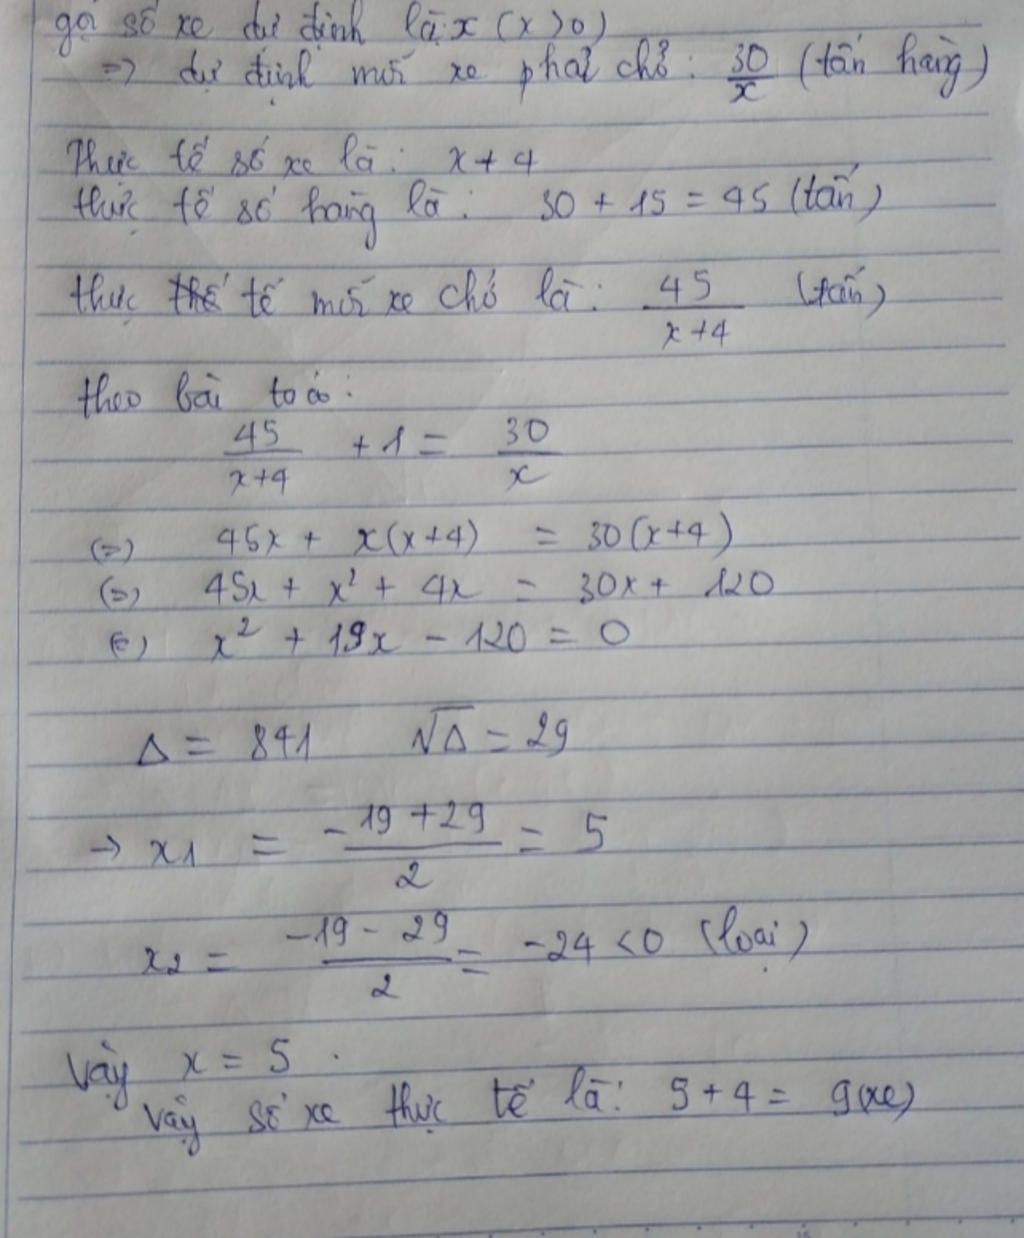 gọi số xe dự định là: x (x>0)
=> dự định mỗi xe phải chở: 30/x (tấn hàng)
Thực tế số xe là: x + 4
thực tế số hàng là: 30 + 15 = 45 (tấn)
thực tế mỗi xe chở là: 45/(x+4) (tấn)
theo bài toán:
45/(x+4) + 1 = 30/x
(=) 45x + x(x+4) = 30(x+4)
(=) 45x + x² + 4x = 30x + 120
(=) x² + 19x - 120 = 0
Δ = 841 √Δ = 29
→ x1 = (-19+29)/2 = 5
x2 = (-19-29)/2 = -24 < 0 (loại)
Vậy x = 5.
Vậy số xe thực tế là: 5 + 4 = 9(xe)